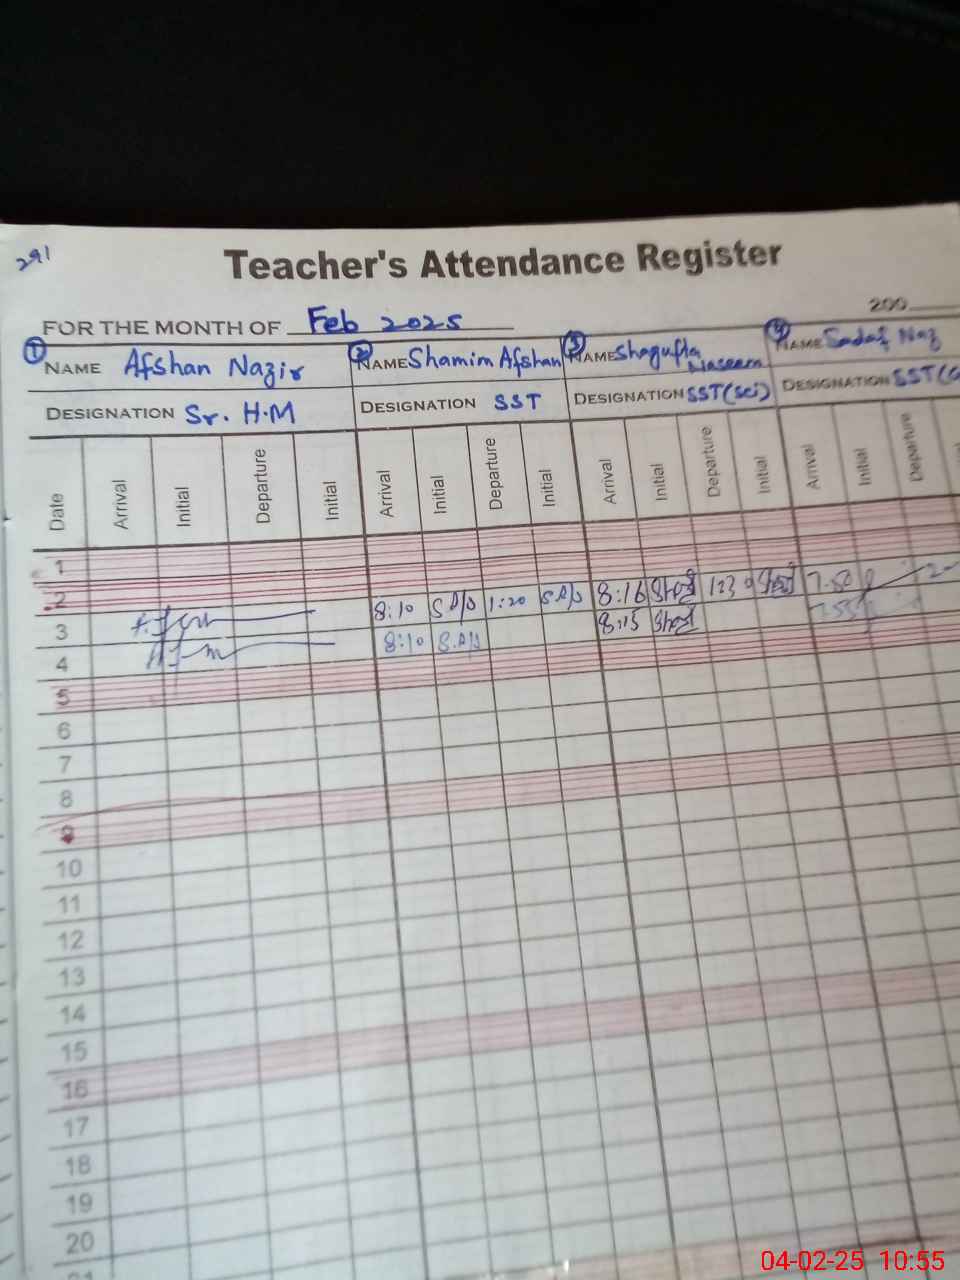 291
Teacher's Attendance Register
FOR THE MONTH OF Feb 2025 200
1 NAME Afshan Nazir 2 NAME Shamim Afshan 3 NAME Shagufta Naseem 4 NAME Sadaf Naz
DESIGNATION Sr. H.M DESIGNATION SST DESIGNATION SST(Sci) DESIGNATION SST(G
Date Arrival Initial Departure Initial Arrival Initial Departure Initial Arrival Initial Departure Initial Arrival Initial Departure
1
2
3 8:10 S A/s 1:20 S A/s 8:16 1230 7:50
4 8:10 S.A/s 8:15 7:55
5
6
7
8
9
10
11
12
13
14
15
16
17
18
19
20
21
04-02-25 10:55